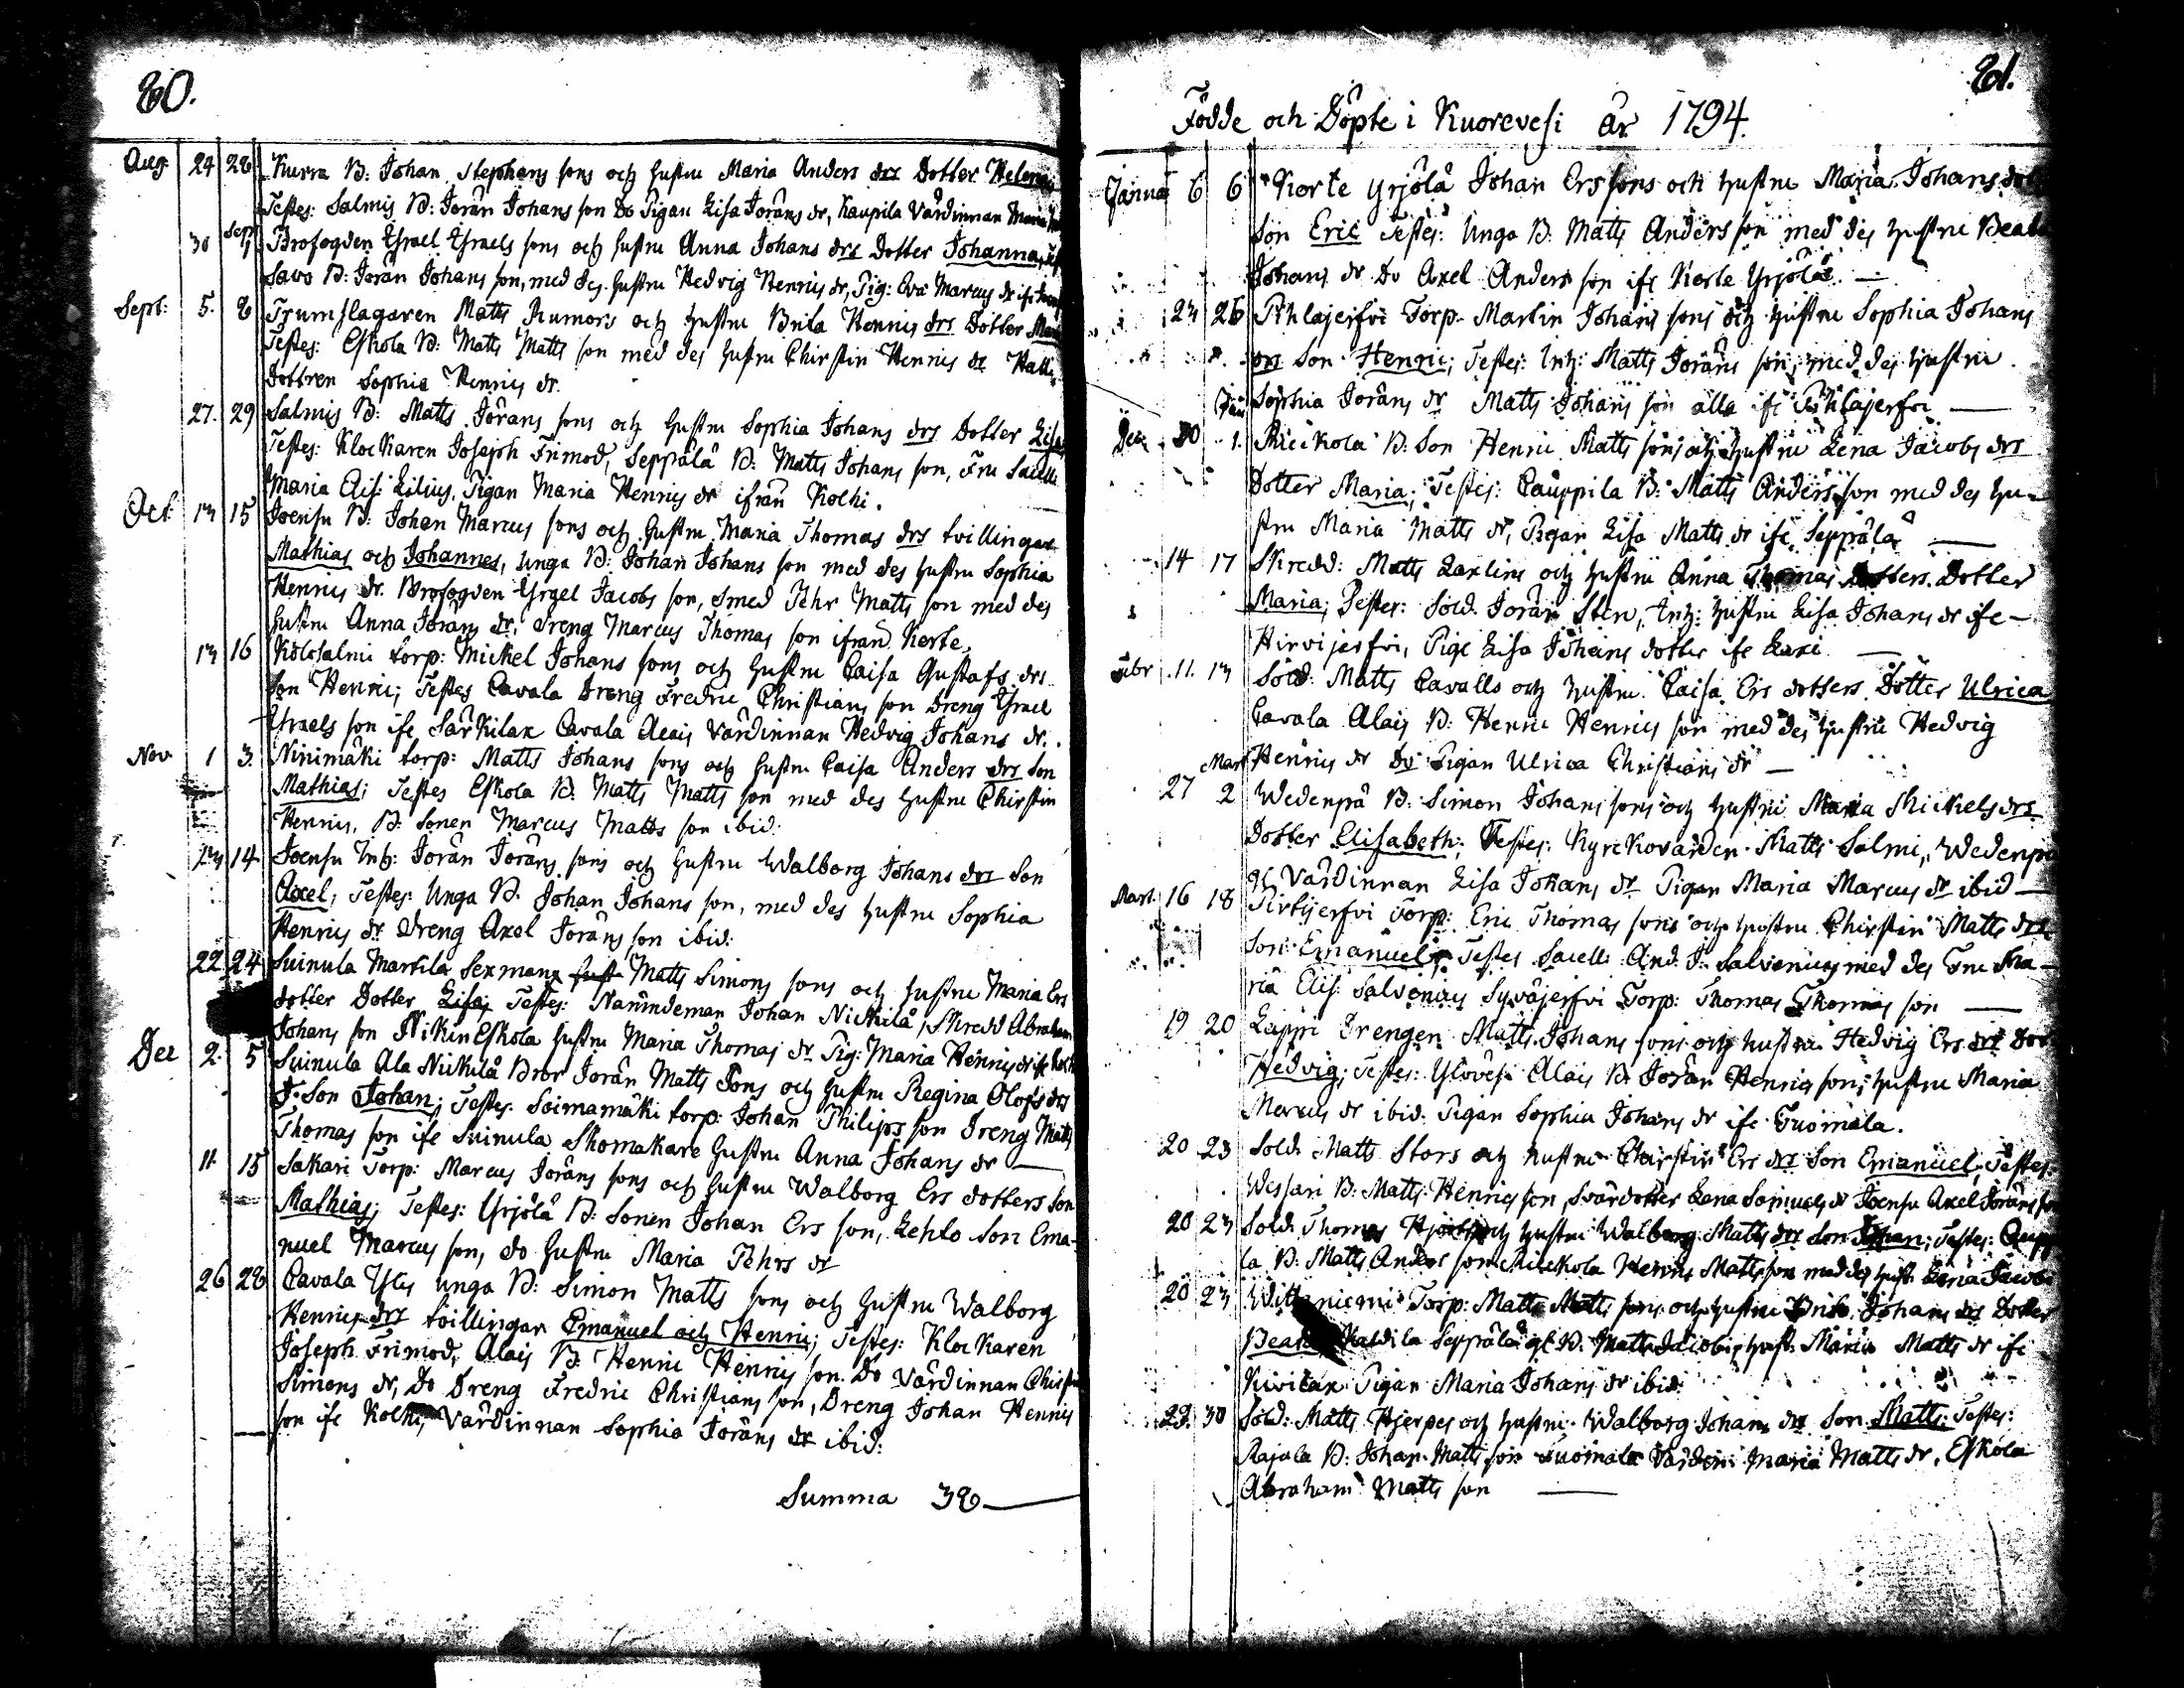 80.
Aug 24 28 Kurra B: Johan Stephans sons och hustru Maria Anders drs Dotter Helena
Testes: Salmis B: Jöran Johans son Do Pigan Lisa Jörans dr, Kaupila Värdinnan Maria
30 Sept 1 Brofogden Israel Israels sons och hustru Anna Johans drs Dotter Johanna,
Savo B: Jöran Johans son, med des hustru Hedvig Henrics dr, Pig: Eva Marcus dr ifr
Sept: 5. 8 Trumslagaren Matts Rumors och hustru Brita Henrics drs Dotter
Testes: Eskola B: Matts Matts son med des hustru Chirstin Henrics dr
Dottren Sophia Henrics dr.
27. 29 Salmis B: Matts Jörans sons och hustru Sophia Johans drs Dotter Lisa
Testes: Klockaren Joseph Frimod, Seppälä B: Matts Johans son, Fru Sacell:
Maria Lilius, Pigan Maria Henrics dr ifrån Kolhi.
Oct: 13 15 Joensu B: Johan Marcus sons och hustru Maria Thomas drs tvillingar
Mathias och Johannes, Unga B: Johan Johans son med des hustru Sophia
Henrics dr. Brofogden Israel Jacobs son, Smed Pehr Matts son med des
hustru Anna Jörans dr, Dreng Marcus Thomas son ifrån Korte.
13 16 Kolosalmi torp: Mickel Johans sons och hustru Caisa Gustafs drs
Son Henric; Testes Cavala Dreng Fredric Christians son Dreng Israel
Israels son ifr Särkilax Cavala Alais Värdinnan Hedvig Johans dr.
Nov 1 3. Ninimäki torp: Matts Johans sons och hustru Caisa Anders drs Son
Mathias; Testes Eskola B: Matts Matts son med des hustru Chirstin
Henrics, B: Sonen Marcus Matts son ibid:
13 14 Joensu Inh: Jöran Jörans sons och hustru Walborg Johans drs Son
Axel; Testes Unga B: Johan Johans son, med des hustru Sophia
Henrics dr Dreng Axel Jörans son ibid:
22 24 Suinula Martila Sexmans Matts Simons sons och hustru Maria Ers
dotter Dotter Lisa; Testes: Nämndeman Johan Nickilä, Skredd Abraham
Johans son Eskola hustru Maria Thomas dr Pig: Maria Henrics dr ifr
Dec 2. 5 Suinula Ala Nickilä Bror Jöran Matts Sons och hustru Regina Olofs drs
Son Johan; Testes: Soimamäki torp: Johan Philips son Dreng Matts
Thomas son ifr Suinula Skomakare hustru Anna Johans dr
11. 15 Sakari Torp: Marcus Jörans sons och hustru Walborg Ers dotters Son
Mathias; Testes: Yrjölä B: Sonen Johan Ers son, Lehto Son Ema-
nuel Marcus son, do hustru Maria Pehrs dr
26 28 Cavala Ylis unga B: Simon Matts sons och hustru Walborg
Henrics drs tvillingar Emanuel och Henric; Testes: Klockaren
Joseph Frimod, Alais B: Henric Henrics son. Do Värdinnan
Simons dr, Do Dreng Fredric Christians son, Dreng Johan Henrics
son ifr Kolhi, Värdinnan Sophia Jörans dr ibid:
Summa 38
81.
Födde och Döpte i Kuorevesi år 1794.
Januä 6 6 Korte Yrjölä Johan Ers sons och hustru Maria Johans
Son Eric Testes: Unga B: Matts Anders son med des hustru Beata
Johans dr Do Axel Anders son ifr Korte Yrjölä
23 26 Pihlajerfvi Torp. Martin Johans sons och hustru Sophia Johans
drs Son Henric; Testes: Inh: Matts Jörans son med des hustru
Sophia Jörans dr Matts Johans son alla ifr Pihlajerfvi
Dec 30 Jan 1. B: Son Henric Matts sons och hustru Lena Jacobs drs
Dotter Maria; Testes: Cauppila B: Matts Anders son med des hu-
stru Maria Matts dr, Pigan Lisa Matts dr ifr Seppälä
14 17 Skredd: Matts Laxlins och hustru Anna Thomas dotters Dotter
Maria; Testes: Sold. Jöran Sten, Inh: hustru Lisa Johans dr ifr
Hirvijerfvi, Pige Lisa Johans dotter ifr
Febr. 11. 13 Sold: Matts Cavalls och hustru Caisa Ers dotters Dotter Ulrica
Cavala Alais B: Henric Henrics son med des hustru Hedvig
Henrics dr Do Pigan Ulrica Christians dr
27 Mart 2 Wedenpä B: Simon Johans sons och hustru Maria Mickels drs
Dotter Elisabeth; Testes: Kyrckovärden Matts Salmi, Wedenpä
gl Värdinnan Lisa Johans dr Pigan Maria Marcus dr ibid
Mart. 16 18 Pirttijerfvi Torp: Eric Thomas sons och hustru Chirstin Matts drs
Son Emanuel; Testes Sacell: And. J. Salvenius med des Fru Ma-
ria Elis: Salvenius Syväjerfvi Torp: Thomas Thomas son
19 20 Lappi Drengen Matts Johans sons och hustru Hedvig Ers drs Dot
Hedvig; Testes: Ylövesi Alais B: Jöran Henrics son, hustru Maria
Marcus dr ibid. Pigan Sophia Johans dr ifr Tuomala.
20 23 Sold: Matts Stors och hustru Chirstin Ers drs Son Emanuel, Testes:
Wessari B: Matts Henrics son, Svärdotter Lena Samuels dr Joensu Axel Jörans son
20 23 Sold: Thomas och hustru Walborg Matts drs Son Johan; Testes:
la B: Matts Anders son Henric Matts son med des hust: Lena Jacobs
20 23 Torp: Matts Matts sons och hustru Brita Johans drs Dotter
Beata Seppälä gl B. Matts Jacobs hust: Maria Matts dr ifr
Kivilax Pigan Maria Johans dr ibid:
29. 30 Sold: Matts Hjerpes och hustru Walborg Johans drs Son Matts: Testes:
Rajala B: Johan Matts son Tuomala Värdin: Maria Matts dr, Eskola
Abraham Matts son